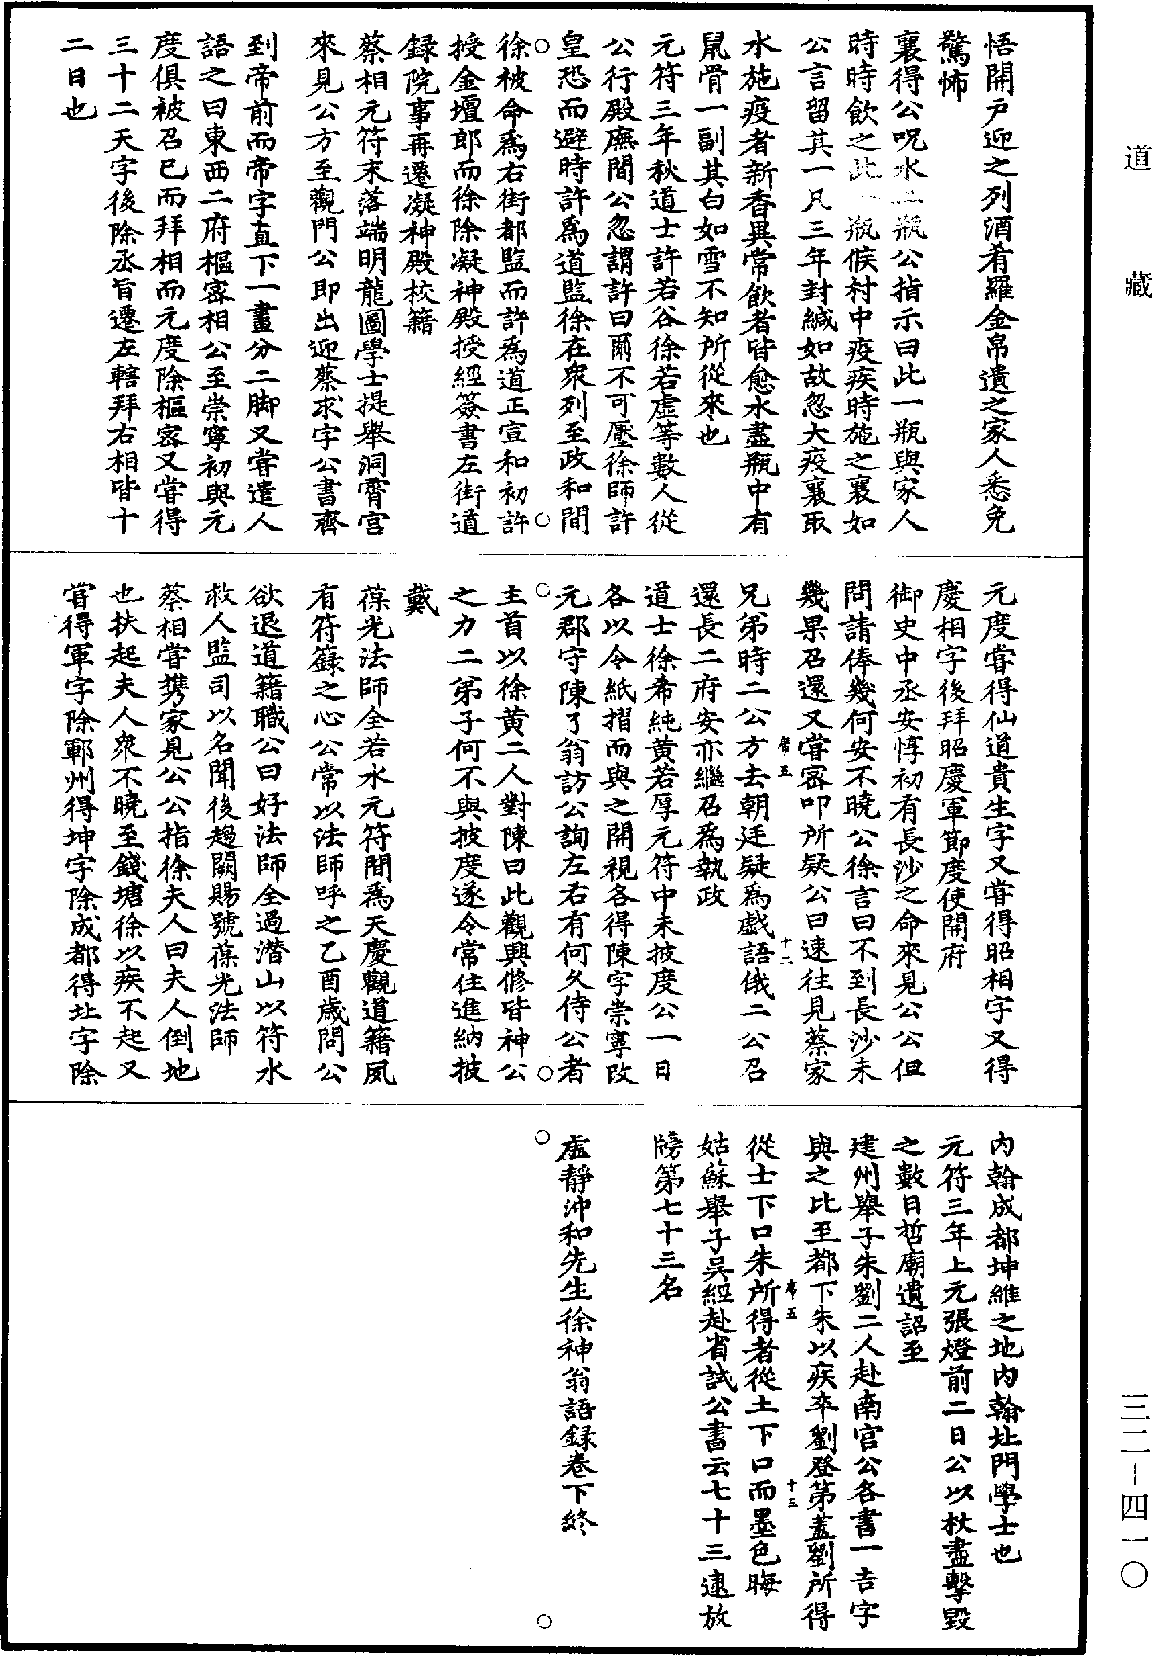 道藏
悟開戸迎之列酒肴羅金帛遺之家人悉免
驚怖
襄得公呪水二瓶公指示曰此一瓶與家人
時時飲之此一瓶候村中疫疾時施之襄如
公言留其一凡三年封緘如故忽大疫襄取
水施疫者新香異常飲者皆愈水盡瓶中有
鼠骨一副其白如雪不知所從來也
元符三年秋道士許若谷徐若虛等數人從
公行殿廡間公忽謂許曰爾不可壓徐師許
皇恐而避時許爲道監徐在衆列至政和間
徐被命爲右街都監而許爲道正宣和初許
授金壇郎而徐除凝神殿授經簽書左街道
録院事再遷凝神殿校籍
蔡相元符末落端明龍圖學士提舉洞霄宮
來見公方至觀門公即出迎蔡求字公書齊
到帝前而帝字直下一畫分二脚又嘗遣人
語之曰東西二府樞密相公至崇寧初與元
度俱被召已而拜相而元度除樞密又嘗得
三十二天字後除丞旨遷左轄拜右相皆十
二日也
元度嘗得仙道貴生字又嘗得昭相字又得
慶相字後拜昭慶軍節度使開府
御史中丞安惇初有長沙之命來見公公但
問請俸幾何安不曉公徐言曰不到長沙未
幾果召還又嘗密叩所疑公曰速往見蔡家
兄弟時二公方去朝廷疑爲戲語俄二公召
還長二府安亦繼召爲執政
道士徐希純黃若厚元符中未披度公一日
各以令紙摺而與之開視各得陳字崇寧改
元郡守陳了翁訪公詢左右有何久侍公者
主首以徐黃二人對陳曰此觀興修皆神公
之力二弟子何不與披度遂令常住進納披
戴
葆光法師全若水元符間爲天慶觀道籍夙
有符籙之心公常以法師呼之乙酉歲問公
欲退道籍職公曰好法師全過潛山以符水
救人監司以名聞後趨闕賜號葆光法師
蔡相嘗携家見公公指徐夫人曰夫人倒地
也扶起夫人衆不曉至錢塘徐以疾不起又
嘗得軍字除鄆州得坤字除成都得北字除
内翰成都坤維之地内翰北門學士也
元符三年上元張燈前二日公以杖盡擊毀
之數日哲廟遺詔至
建州舉子朱劉二人赴南宫公各書一吉字
與之比至都下朱以疾卒劉登第蓋劉所得
從士下口朱所得者從土下口而墨色晦
姑蘇舉子吳經赴省試公書云七十三逮放
牓第七十三名
虛靜沖和先生徐神翁語録卷下終
席五
十二
席五
十三
三二-四一〇